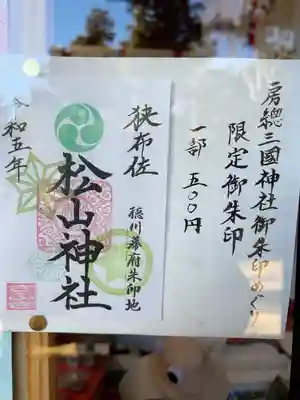 房總三國神社御朱印めぐり
限定御朱印
一部 五〇〇円
狭布佐
徳川幕府朱印地
松山神社
令和五年